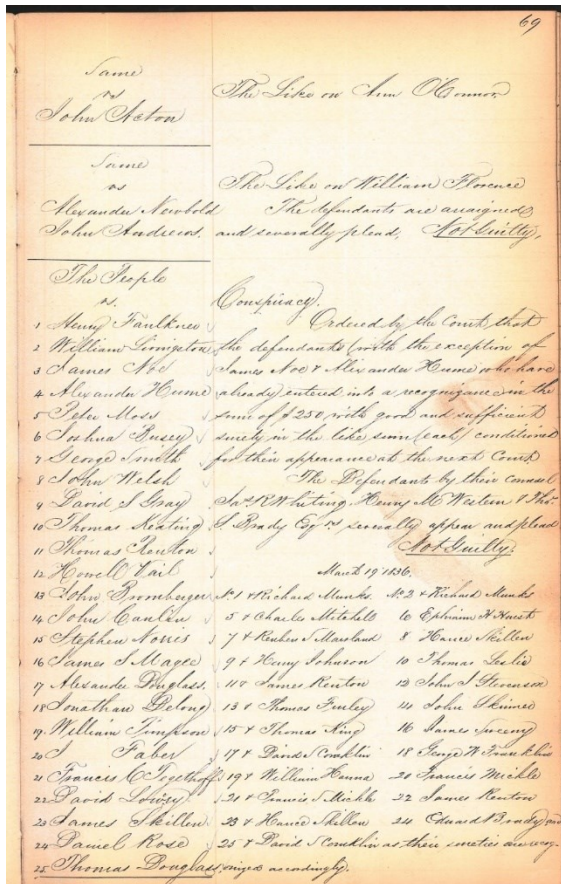 69
Same
vs
John Acton
The Like on Ann O'Connor
Same
vs
Alexander Newbold
John Andrews.
The Like on William Florence
The defendants are arraigned
and severally plead, Not Guilty.
The People
vs.
1 Henry Faulkner
2 William Livingston
3 James Noe
4 Alexander Hume
5 Peter Moss
6 Joshua Busey
7 George Smith
8 John Welsh
9 David S Gray
10 Thomas Keating
11 Thomas Renton
12 Howell Vail
13 John Bromberger
14 John Canlin
15 Stephen Norris
16 James S Magee
17 Alexander Douglass.
18 Jonathan Delong
19 William Timpson
20 J Faber
21 Francis C
22 David Lowrey
23 James Skillen
24 Daniel Rose
25 Thomas Douglass
Conspiracy.
Ordered by the Court that
the defendants (with the exception of
James Noe & Alexander Hume who have
already entered into a recognizance in the
sum of $250 with good and sufficient
surety in the like sum (each) conditioned
for their appearance at the next Court
The Defendants by their counsel
Jas R Whiting, Henry M Western & Thos.
S Brady Esqrs severally appear and plead
Not Guilty.
March 19 1836.
No. 1 & Richard Munks. No. 2 & Richard Munks
5 & Charles Mitchell 6 Ephraim H
7 & Reuben S 8 Hance Skillen
9 & Henry Johnson 10 Thomas Leslie
11 & James Renton 12 John S Stevenson
13 & Thomas Finley 14 John Skinner
15 & Thomas King 16 James Sweeny
17 & David S Conklin 18 George W
19 & William Hanna 20 Francis Mickle
21 & Francis S Mickle 22 James Renton
23 & Hance Skillen 24 Edward Brady and
25 & David S Conklin as their sureties are recog-
nized accordingly.